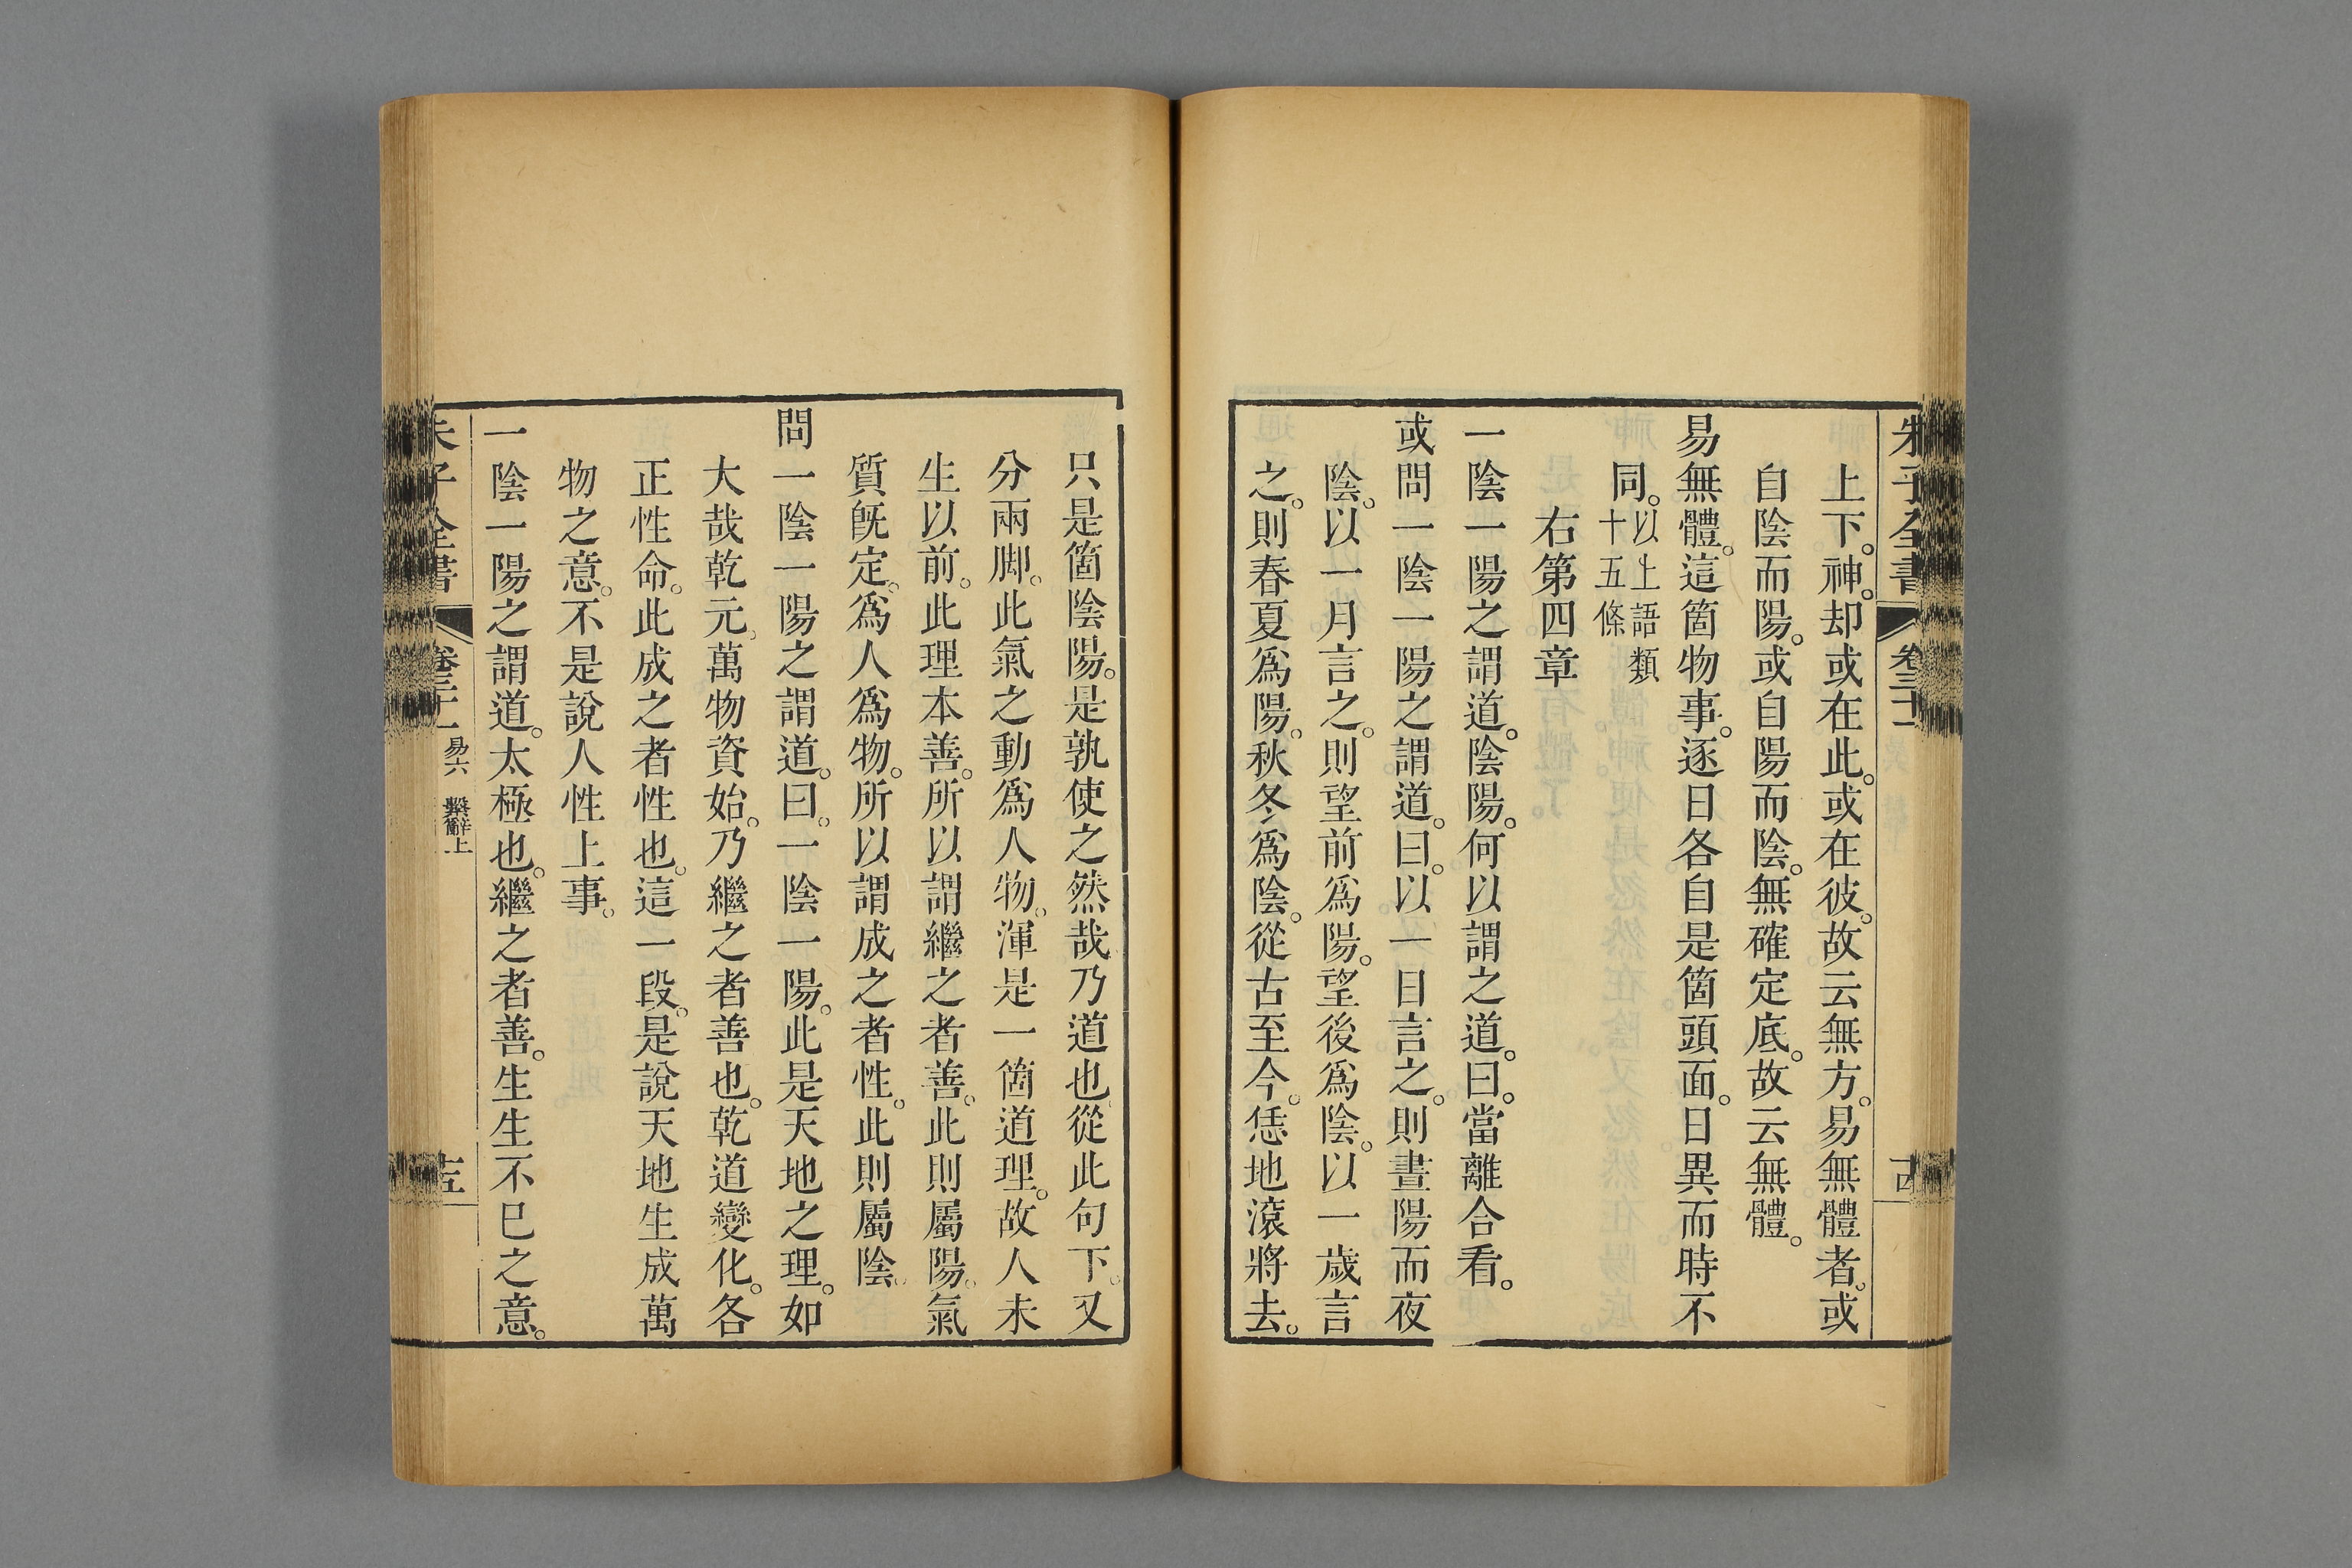 朱子全書 卷三十一 十四
上下。神。却或在此。或在彼。故云無方。易無體者。或
自陰而陽。或自陽而陰。無確定底。故云無體。
易無體。這箇物事。逐日各自是箇頭面。日異而時不
同。以上語類十五條
右第四章
一陰一陽之謂道。陰陽。何以謂之道。曰。當離合看。
或問一陰一陽之謂道。曰。以一日言之。則晝陽而夜
陰。以一月言之。則望前爲陽。望後爲陰。以一歲言
之。則春夏爲陽。秋冬爲陰。從古至今。恁地滾將去。
只是箇陰陽。是孰使之然哉乃道也。從此句下。又
分兩脚。此氣之動爲人物。渾是一箇道理。故人未
生以前。此理本善。所以謂繼之者善。此則屬陽。氣
質旣定。爲人爲物。所以謂成之者性。此則屬陰。
問一陰一陽之謂道。曰。一陰一陽。此是天地之理。如
大哉乾元。萬物資始。乃繼之者善也。乾道變化。各
正性命。此成之者性也。這一段。是說天地生成萬
物之意。不是說人性上事。
一陰一陽之謂道。太極也。繼之者善。生生不已之意。
朱子全書 卷三十一 易六 繫辭上 十五